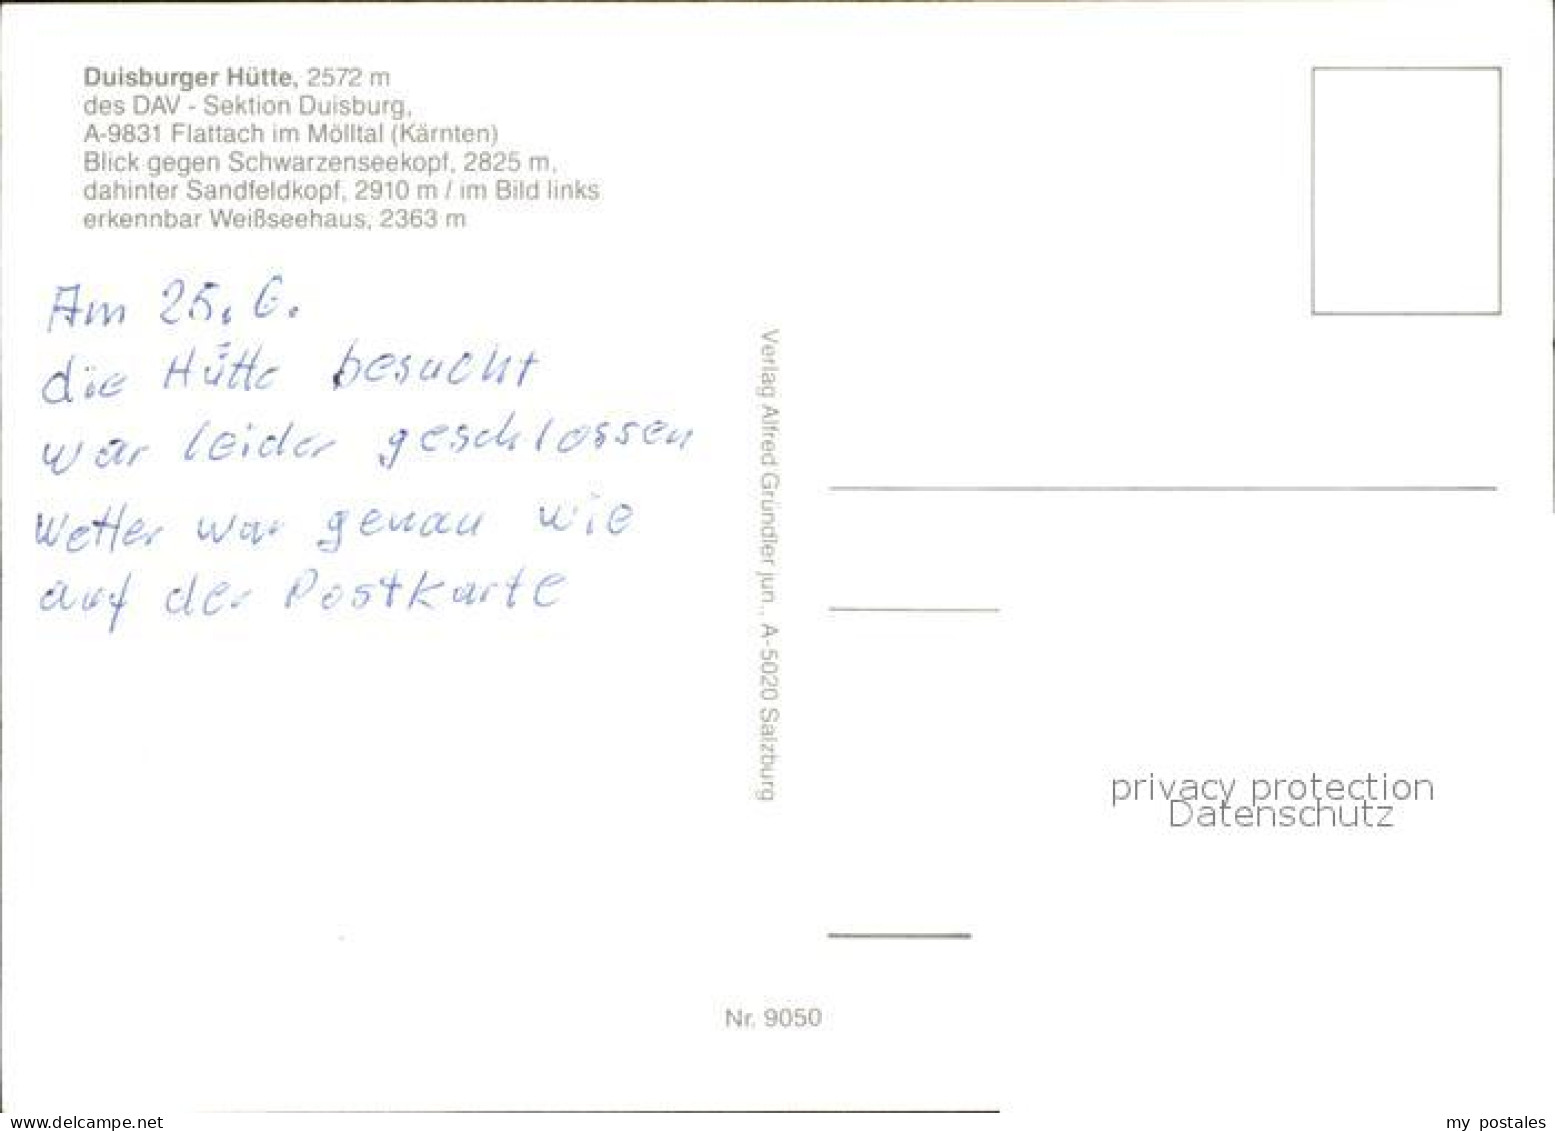 Duisburger Hütte, 2572 m
des DAV - Sektion Duisburg,
A-9831 Flattach im Mölltal (Kärnten)
Blick gegen Schwarzenseekopf, 2825 m,
dahinter Sandfeldkopf, 2910 m / im Bild links
erkennbar Weißseehaus, 2363 m
Am 25. 6.
die Hütte besucht
war leider geschlossen
Wetter war genau wie
auf der Postkarte
Verlag Alfred Gründler jun., A-5020 Salzburg
privacy protection
Datenschutz
Nr. 9050
www.delcampe.net
my_postales